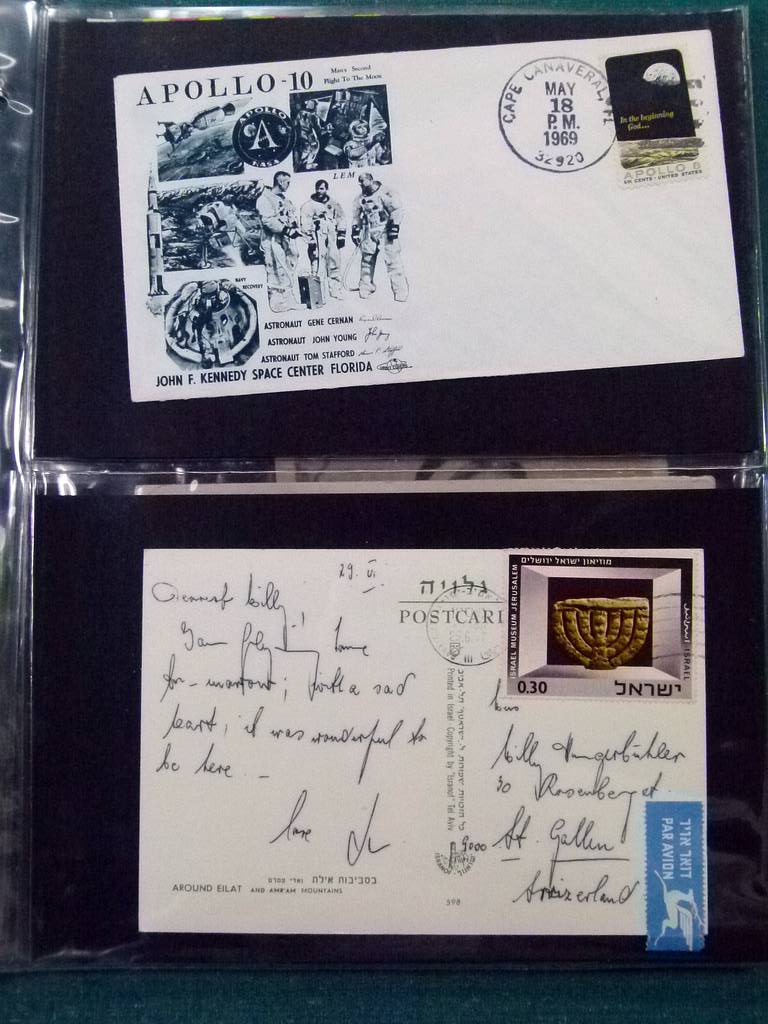 APOLLO-10
Man's Second
Flight To The Moon
APOLLO
NASA
LEM
NAVY
RECOVERY
ASTRONAUT GENE CERNAN
ASTRONAUT JOHN YOUNG
ASTRONAUT TOM STAFFORD
JOHN F. KENNEDY SPACE CENTER FLORIDA
CAPE CANAVERAL, FL
MAY
18
P.M.
1969
32920
In the beginning
God...
APOLLO 8
SIX CENTS · UNITED STATES
29. VI
Dearest Willy!
home
to-morrow; with a sad
heart; it was wonderful to
be here.
love
גלויה
POSTCARD
מוזיאון ישראל ירושלים
ISRAEL MUSEUM JERUSALEM
ISRAEL
0.30
ישראל
Printed in Israel · Copyright by "Israno" Tel Aviv
Willy Hungerbühler
30 Rosenberg
9000 St. Gallen
דואר אויר
PAR AVION
בסביבות אילת
AROUND EILAT AND AMRAM MOUNTAINS
598